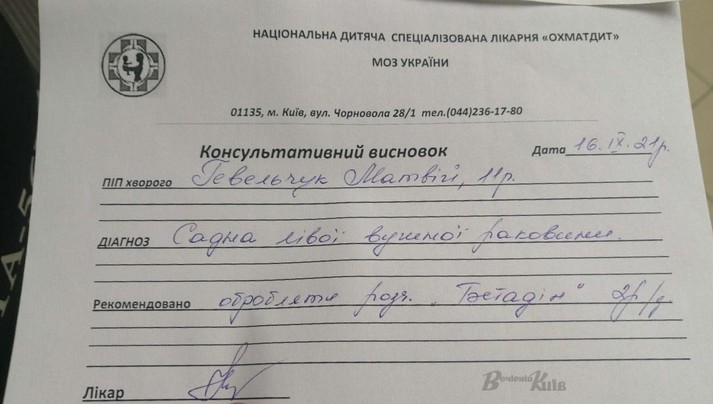 НАЦІОНАЛЬНА ДИТЯЧА СПЕЦІАЛІЗОВАНА ЛІКАРНЯ «ОХМАТДИТ»
МОЗ УКРАЇНИ
01135, м. Київ, вул. Чорновола 28/1 тел.(044)236-17-80
Консультативний висновок Дата 16.IX.21р.
ПІП хворого Гевельчук Матвій, 11р.
ДІАГНОЗ Садна лівої вушної раковини.
Рекомендовано обробляти розч. „Бетадін" 2р/д.
Лікар
Київ